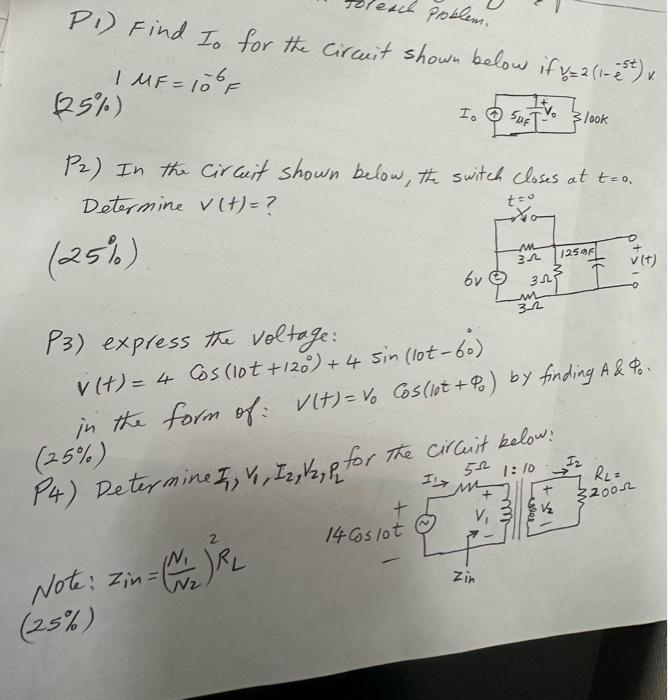 foreach Problem.
P1) Find I₀ for the circuit shown below if V₀=2(1-e^-5t) v
1 MF = 10^-6 F
(25%)
I₀ 5μF + V₀ 100K
P2) In the circuit shown below, the switch closes at t=0.
Determine v(t)=?
t=0
(25%)
3Ω 125mF + v(t) -
6v 3Ω
3Ω
P3) express the voltage:
v(t) = 4 Cos(10t+120°)+4 sin(10t-60°)
in the form of: v(t)=V₀ Cos(10t+φ₀) by finding A & φ₀.
(25%)
P4) Determine I₁, V₁, I₂, V₂, PL for the circuit below:
I₁ 5Ω 1:10 I₂ RL=
200Ω
14Cos10t + - + V₁ - + V₂ -
Zin
Note: Zin=(N₁/N₂)² RL
(25%)